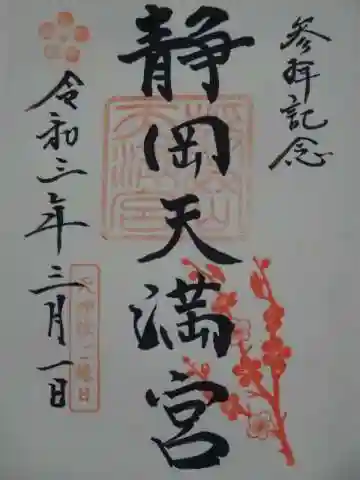 参拝記念
静岡天満宮
令和三年三月一日